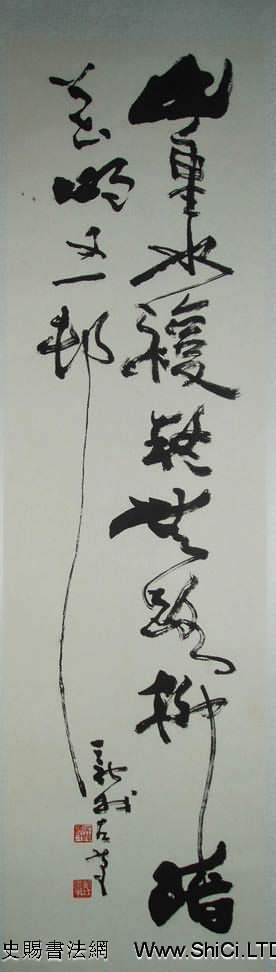 山重水複疑無路柳暗
花明又一邨
史賜書法網
Www.ShiCi.LTD